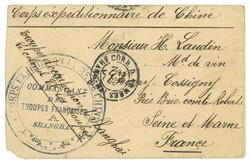 Corps expéditionnaire de Chine
Monsieur H. Laudin
Md de vin
Cossigny
Près Brie Comte Robert
Seine et Marne
France
CORPS EXPÉD
COMMANDANT
DES
TROUPES FRANÇAISES
A
SHANGHAI
CORR. D. ARMÉES
Shanghai